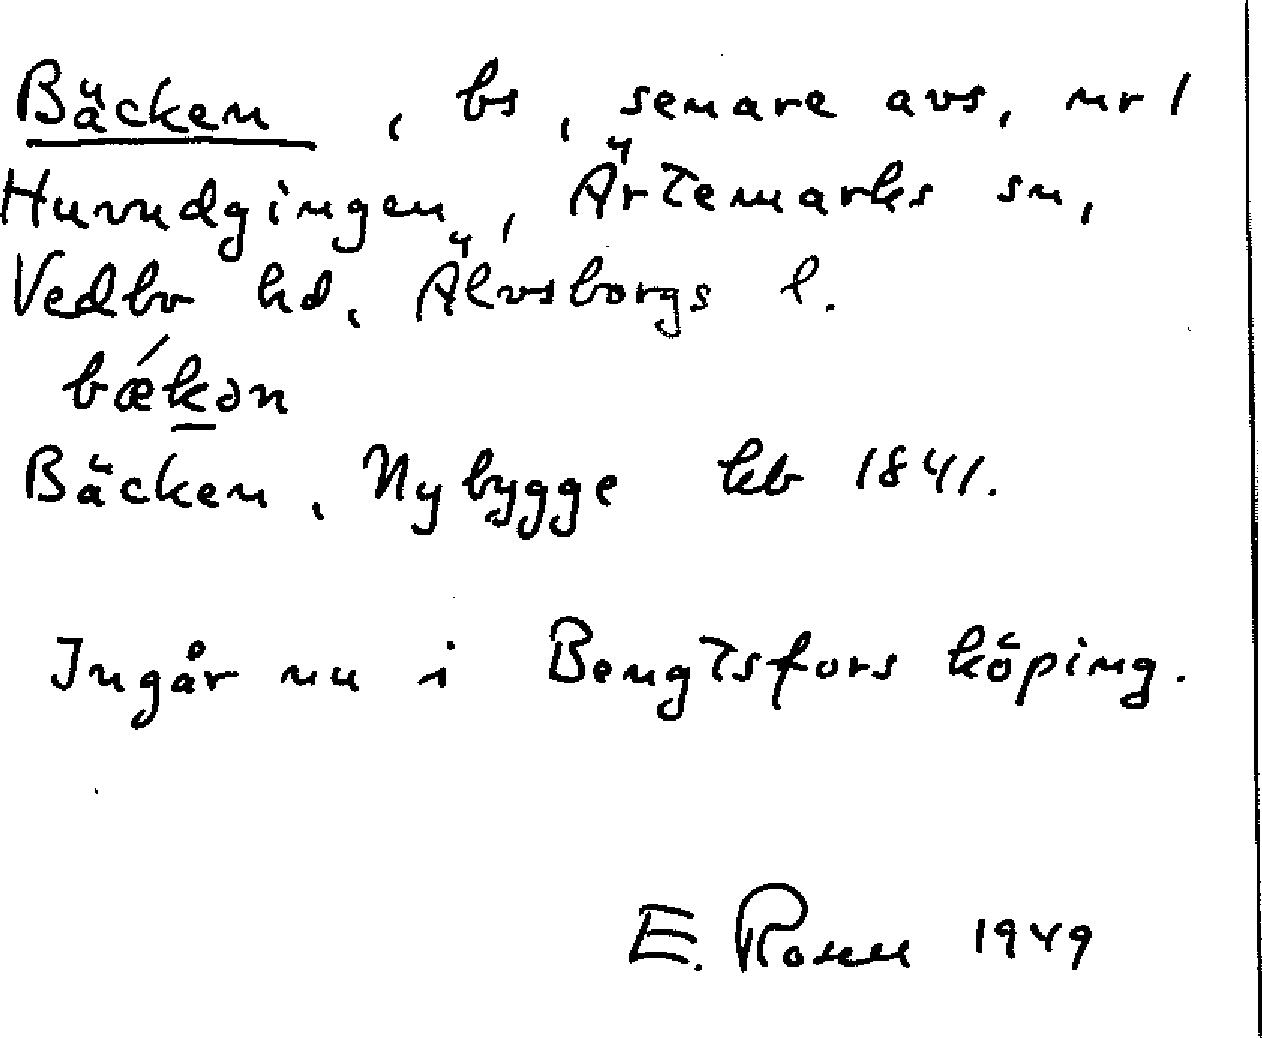 Bäcken, bs, senare avs, nr 1
Huvudgingen, Ärtemarks sn,
Vedbo hd, Älvsborgs l.
bǽk̲ən
Bäcken, Nybygge hb 1841.
Ingår nu i Bengtsfors köping.
E. 1949